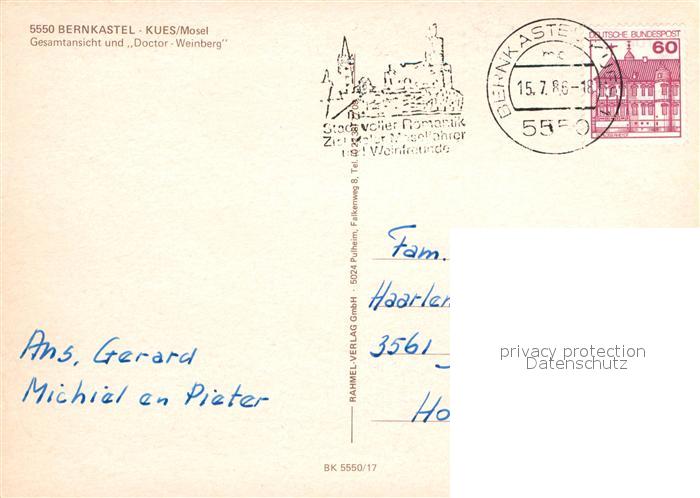 5550 BERNKASTEL - KUES/Mosel
Gesamtansicht und „Doctor-Weinberg"
Stadt voller Romantik
Ziel vieler Moselfahrer
und Weinfreunde
BERNKASTEL-KUES
15.7.86-18
5550
DEUTSCHE BUNDESPOST
60
RAHMEL-VERLAG GmbH · 5024 Pulheim, Falkenweg 8, Tel.
Fam.
Haarlem
3561
Ho
privacy protection
Datenschutz
Ans, Gerard
Michiel en Pieter
BK 5550/17